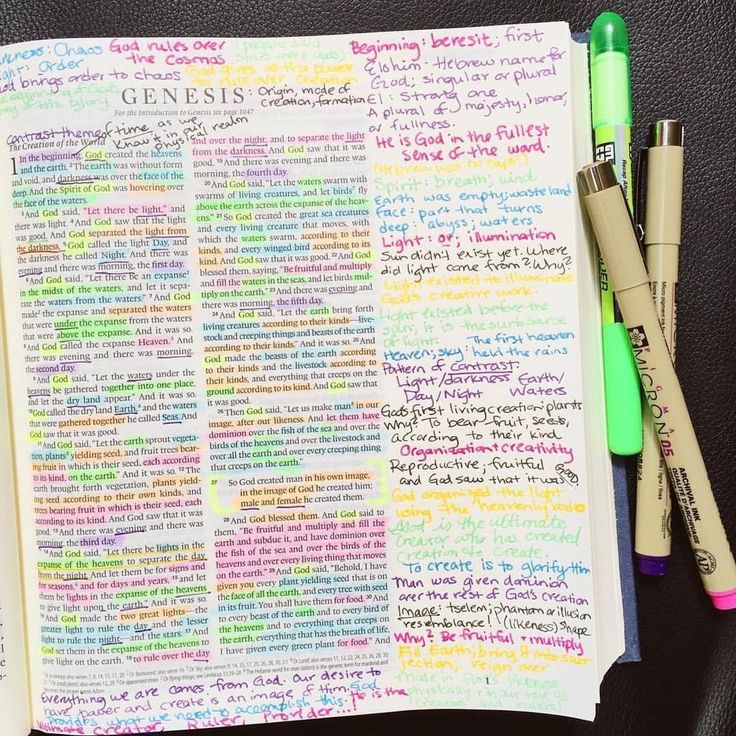 Darkness: Chaos
Light: Order
God brings order to chaos
God rules over
the Cosmos
God gives us the power
to rule over creation
GENESIS
: Origin, mode of
creation, formation
For the Introduction to Genesis see page 1047
Contrast theme of time, as we
know it in our
physical realm
The Creation of the World
1 In the beginning, God created the heavens
and the earth. 2 The earth was without form
and void, and darkness was over the face of the
deep. And the Spirit of God was hovering over
the face of the waters.
3 And God said, "Let there be light," and there
was light. 4 And God saw that the light
was good. And God separated the light from
the darkness. 5 God called the light Day, and
the darkness he called Night. And there was
evening and there was morning, the first day.
6 And God said, "Let there be an expanse
in the midst of the waters, and let it sepa-
rate the waters from the waters." 7 And God
made the expanse and separated the waters
that were under the expanse from the waters
that were above the expanse. And it was so.
8 And God called the expanse Heaven. And
there was evening and there was morning,
the second day.
9 And God said, "Let the waters under the
heavens be gathered together into one place,
and let the dry land appear." And it was so.
10 God called the dry land Earth, and the waters
that were gathered together he called Seas. And
God saw that it was good.
11 And God said, "Let the earth sprout vegeta-
tion, plants yielding seed, and fruit trees bear-
ing fruit in which is their seed, each according
to its kind, on the earth." And it was so. 12 The
earth brought forth vegetation, plants yield-
ing seed according to their own kinds, and
trees bearing fruit in which is their seed, each
according to its kind. And God saw that it was
good. 13 And there was evening and there was
morning, the third day.
14 And God said, "Let there be lights in the
expanse of the heavens to separate the day
from the night. And let them be for signs and
for seasons, and for days and years, 15 and let
them be lights in the expanse of the heavens
to give light upon the earth." And it was so.
16 And God made the two great lights—the
greater light to rule the day and the lesser
light to rule the night—and the stars. 17 And
God set them in the expanse of the heavens to
give light on the earth, 18 to rule over the day
and over the night, and to separate the light
from the darkness. And God saw that it was
good. 19 And there was evening and there was
morning, the fourth day.
20 And God said, "Let the waters swarm with
swarms of living creatures, and let birds fly
above the earth across the expanse of the heav-
ens." 21 So God created the great sea creatures
and every living creature that moves, with
which the waters swarm, according to their
kinds, and every winged bird according to its
kind. And God saw that it was good. 22 And God
blessed them, saying, "Be fruitful and multiply
and fill the waters in the seas, and let birds mul-
tiply on the earth." 23 And there was evening and
there was morning, the fifth day.
24 And God said, "Let the earth bring forth
living creatures according to their kinds—live-
stock and creeping things and beasts of the earth
according to their kinds." And it was so. 25 And
God made the beasts of the earth according
to their kinds and the livestock according
to their kinds, and everything that creeps on the
ground according to its kind. And God saw that
it was good.
26 Then God said, "Let us make man in our
image, after our likeness. And let them have
dominion over the fish of the sea and over the
birds of the heavens and over the livestock and
over all the earth and over every creeping thing
that creeps on the earth."
27 So God created man in his own image,
in the image of God he created him;
male and female he created them.
28 And God blessed them. And God said to
them, "Be fruitful and multiply and fill the
earth and subdue it, and have dominion over
the fish of the sea and over the birds of the
heavens and over every living thing that moves
on the earth." 29 And God said, "Behold, I have
given you every plant yielding seed that is on
the face of all the earth, and every tree with seed
in its fruit. You shall have them for food. 30 And
to every beast of the earth and to every bird of
the heavens and to everything that creeps on
the earth, everything that has the breath of life,
I have given every green plant for food." And
Beginning: beresit; first
Elohim: Hebrew name for
God; singular or plural
El: Strong one
A plural of majesty, honor,
or fullness.
He is God in the fullest
sense of the word.
(Hebrew has no caps)
Spirit: breath; wind
Earth was empty; wasteland
Face: part that turns
deep: abyss; waters
Light: or; illumination
Sun didn't exist yet. Where
did light come from? Why?
Light existed to illuminate
God's creative work.
Light existed before the
sun; it is the source
of light.
The first heaven
Heaven; sky: held the rains
Pattern of contrast:
Light/darkness Earth/
Day/Night Waters
God's first living creation: plants
Why? To bear fruit, seeds,
according to their kind
Organization + creativity
Reproductive; fruitful
and God saw that it was good
God organized the light
using the heavenly bodies
God is the ultimate
creator who has created
creation to create.
To create is to glorify Him
Man was given dominion
over the rest of God's creation
Image: tselem; phantom or illusion
resemblance! (likeness) shape
Why? Be fruitful + multiply
Fill Earth; bring it into sub-
jection; reign over
made in God's likeness
physically + in our role as
creators and rulers)
1
Everything we are comes from God. Our desire to
have power and create is an image of Him. God
provides what we need to accomplish this. He is the
ultimate Creator, Ruler, Provider...
MICRON 05
ARCHIVAL INK